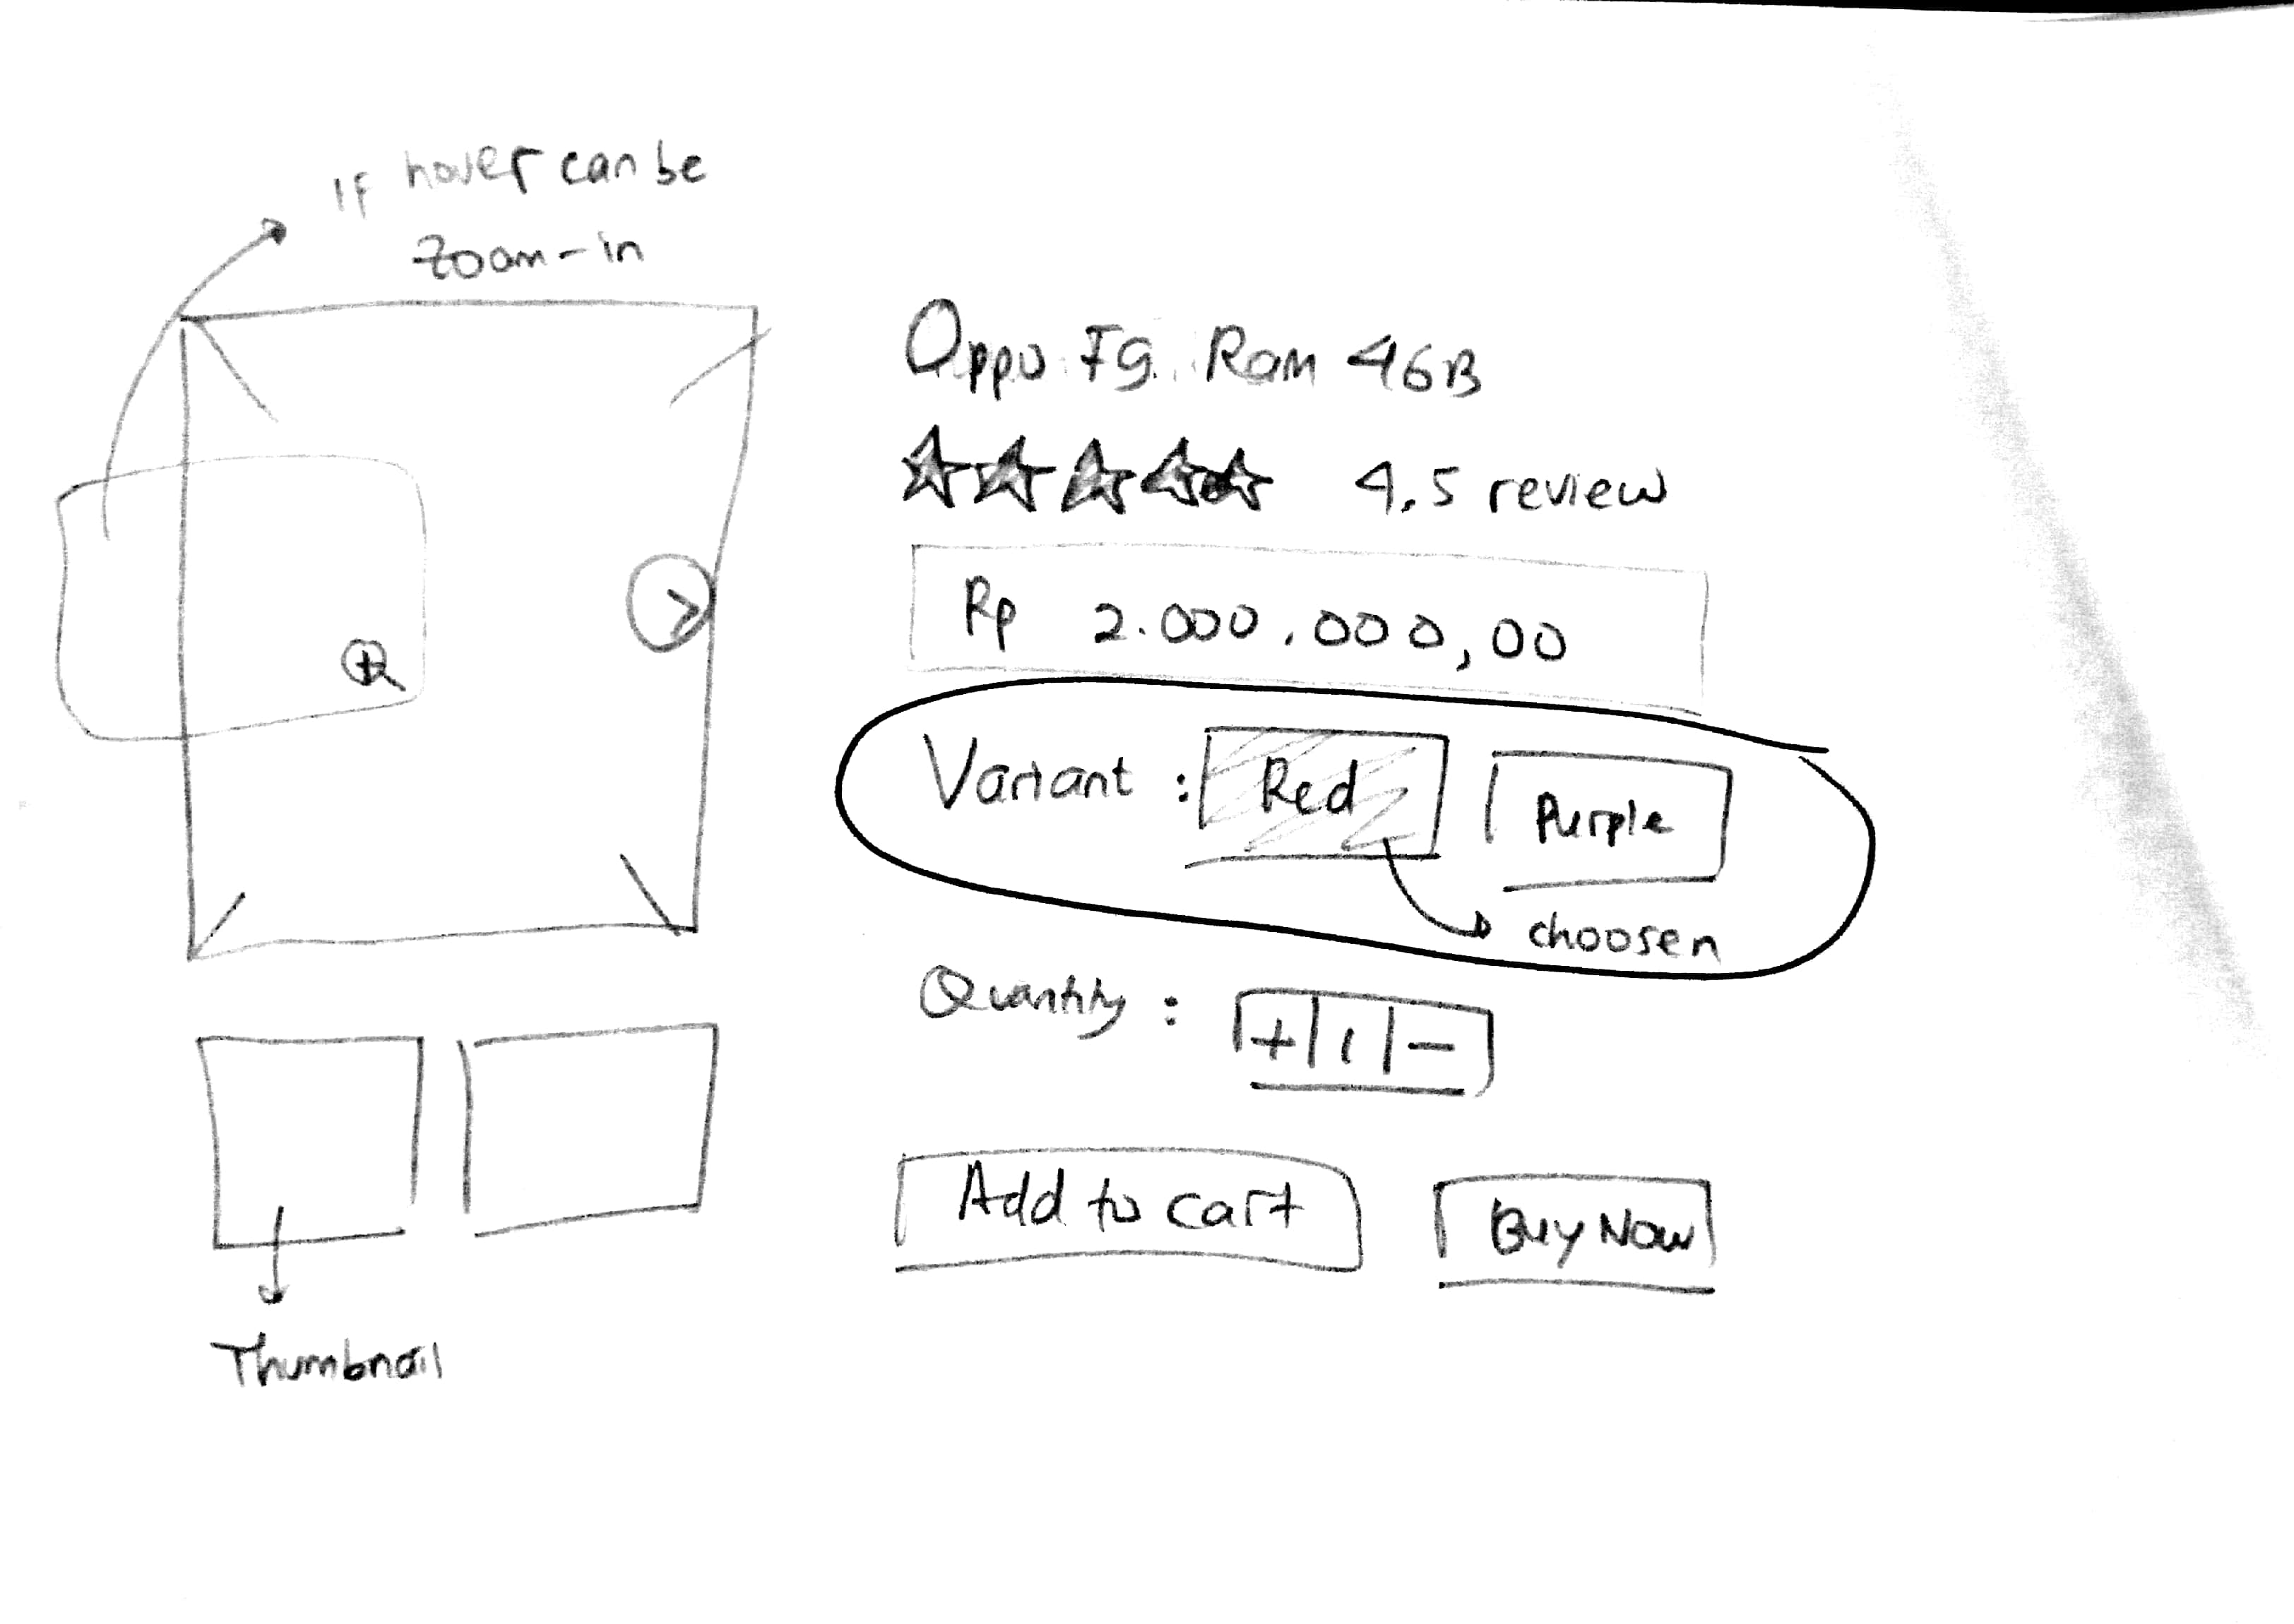 If hover can be
zoom-in
Oppo F9 Ram 4GB
4.5 review
Rp 2.000.000,00
Variant : Red Purple
choosen
Quantity : + 1 -
Add to cart Buy Now
Thumbnail